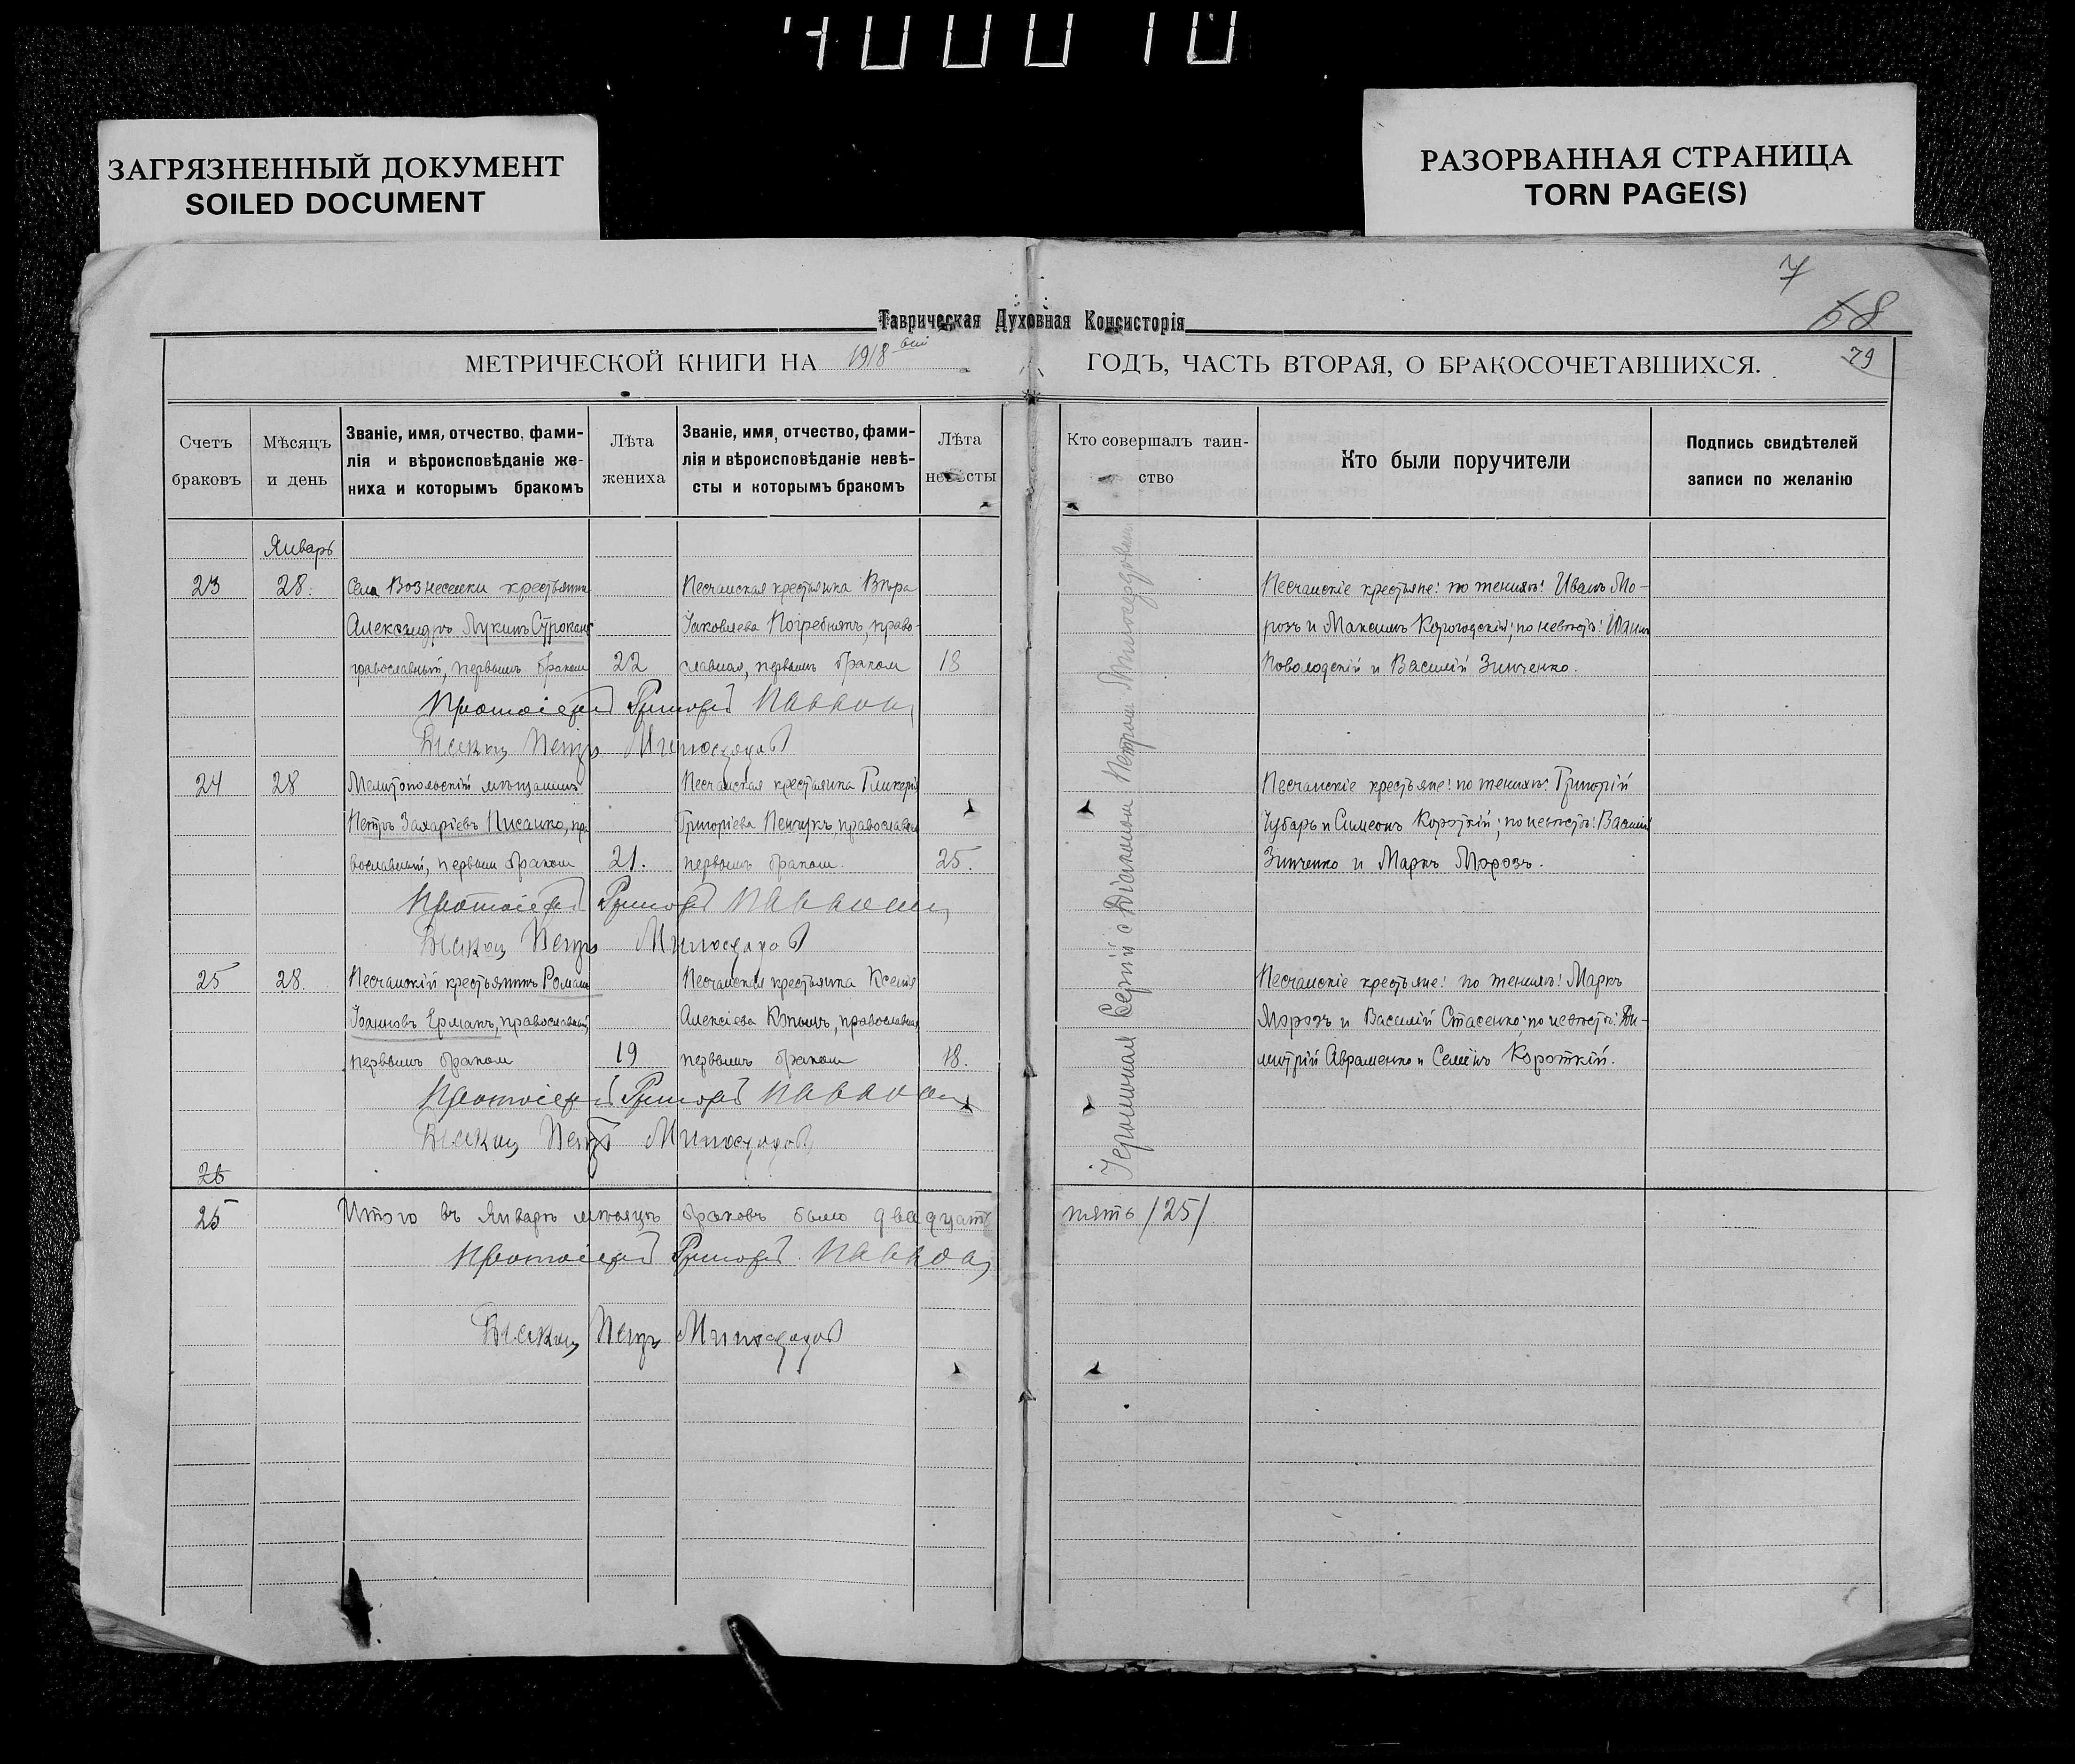 400010
ЗАГРЯЗНЕННЫЙ ДОКУМЕНТ
SOILED DOCUMENT
РАЗОРВАННАЯ СТРАНИЦА
TORN PAGE(S)
7
68
79
Таврическая Духовная Консисторія
МЕТРИЧЕСКОЙ КНИГИ НА 1918 ГОДЪ, ЧАСТЬ ВТОРАЯ, О БРАКОСОЧЕТАВШИХСЯ.
Счетъ браковъ
Мѣсяцъ и день
Званіе, имя, отчество, фами-
лія и вѣроисповѣданіе же-
ниха и которымъ бракомъ
Лѣта жениха
Званіе, имя, отчество, фами-
лія и вѣроисповѣданіе невѣ-
сты и которымъ бракомъ
Лѣта невѣсты
Кто совершалъ таин-
ство
Кто были поручители
Подпись свидѣтелей
записи по желанію
Январь
23
28.
Села Вознесенки крестьянинъ
Александръ Лукинъ
православный, первымъ бракомъ
22
Песчанская крестьянка Вѣра
Іаковлева Погребнякъ, право-
славная, первымъ бракомъ
18
Песчанскіе крестьяне: по женихѣ: Иванъ Мо-
розъ и Максимъ по невѣстѣ:
и Василій Зинченко.
Протоіерей Григорій
Діаконъ Петръ Милосердовъ
24
28
Мелитопольскій мѣщанинъ
Петръ Захаріевъ Писанко, пра
вославный, первымъ бракомъ
21.
Песчанская крестьянка Гликерія
Григоріева православная
первымъ бракомъ.
25.
Песчанскіе крестьяне: по женихѣ: Григорій
Чубарь и Симеонъ Короткій; по невѣстѣ: Василій
Зинченко и Маркъ Морозъ.
Протоіерей Григорій
Діаконъ Петръ Милосердовъ
25
28.
Песчанскій крестьянинъ Романъ
Іоанновъ Ермакъ, православный,
первымъ бракомъ
19
Песчанская крестьянка Ксенія
Алексіева православная
первымъ бракомъ
18.
Песчанскіе крестьяне: по женихѣ: Маркъ
Морозъ и Василій Стасенко; по невѣстѣ: Ди-
митрій Авраменко и Семёнъ Короткій.
Протоіерей Григорій
Діаконъ Петръ Милосердовъ
Іеромонах Сергій с Діаконом Петром Милосердовым
26
25
Итого въ Январѣ мѣсяцѣ браковъ было двадцать пять /25/
Протоіерей Григорій
Діаконъ Петръ Милосердовъ